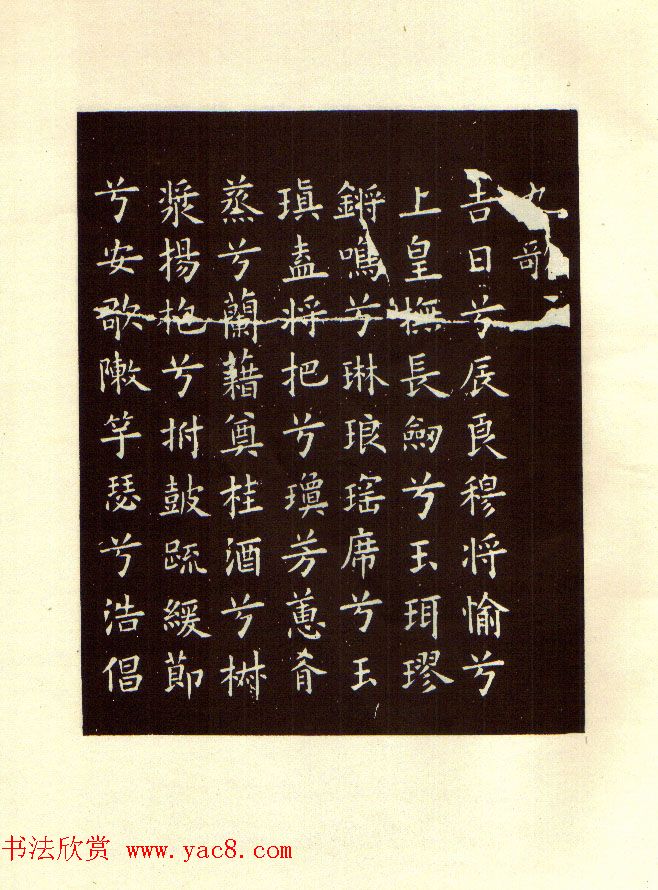 九歌
吉日兮辰良穆将愉兮
上皇撫長劒兮玉珥璆
鏘鳴兮琳琅瑶席兮玉
瑱盍将把兮瓊芳蕙肴
蒸兮蘭藉奠桂酒兮椒
漿揚枹兮拊鼓疏緩節
兮安歌敶竽瑟兮浩倡
书法欣赏 www.yac8.com